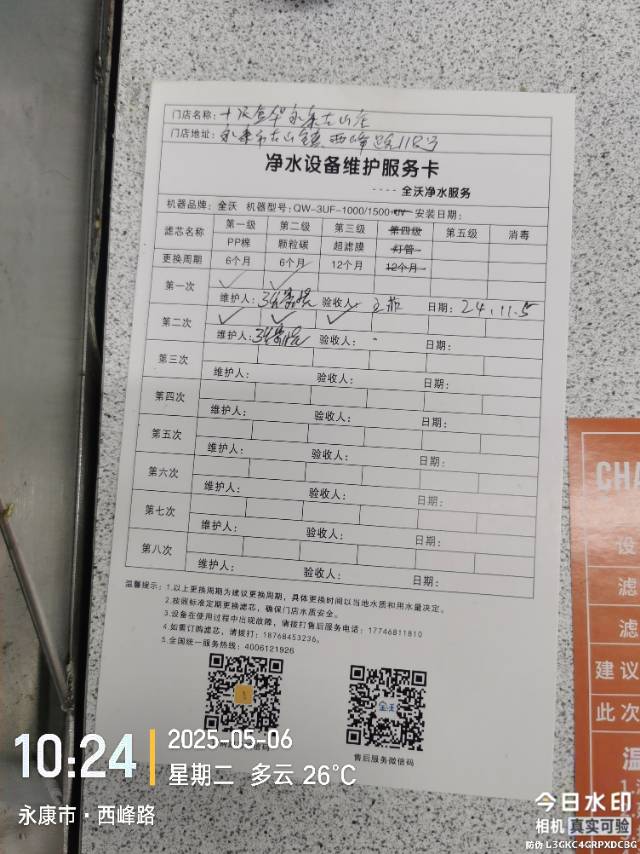 门店名称：
门店地址：永康市古山镇西峰路118号
净水设备维护服务卡
---- 全沃净水服务
机器品牌：全沃 机器型号：QW-3UF-1000/1500-UV 安装日期：
滤芯名称 第一级 第二级 第三级 第四级 第五级 消毒
PP棉 颗粒碳 超滤膜 灯管
更换周期 6个月 6个月 12个月 12个月
第一次 ✓ ✓
维护人： 验收人： 日期：24.11.5
第二次 ✓ ✓ ✓
维护人： 验收人： 日期：
第三次
维护人： 验收人： 日期：
第四次
维护人： 验收人： 日期：
第五次
维护人： 验收人： 日期：
第六次
维护人： 验收人： 日期：
第七次
维护人： 验收人： 日期：
第八次
维护人： 验收人： 日期：
温馨提示：1.以上更换周期为建议更换周期，具体更换时间以当地水质和用水量决定。
2.按照标准定期更换滤芯，确保门店水质安全。
3.设备在使用过程中出现故障，请拨打售后服务电话：17746811810
4.如需订购滤芯，请拨打：18768453236。
5.全国统一服务热线：4006121926
全沃
售后服务微信码
CHA
设
滤
滤
建议
此次
温
10:24
2025-05-06
星期二 多云 26°C
永康市·西峰路
今日水印
相机 真实可验
防伪 L3GKC4GRPXDCBG